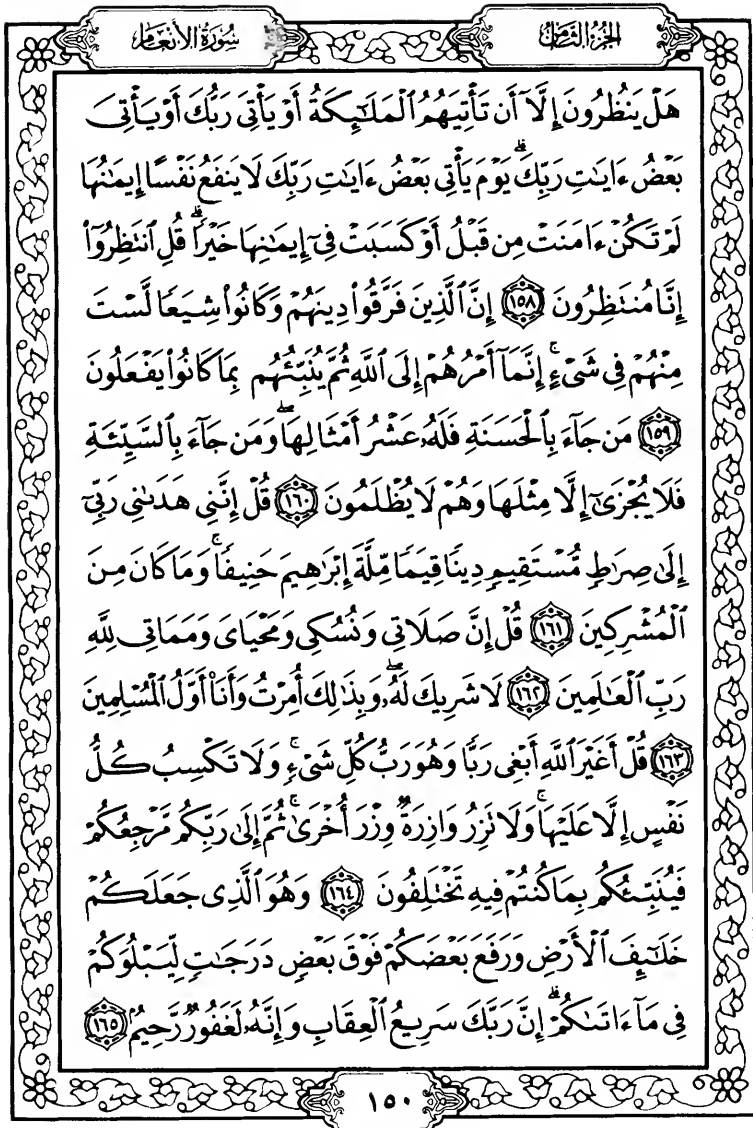 سُورَةُ الأَنْعَامِ
الجُزْءُ الثَّامِنُ
هَلْ يَنظُرُونَ إِلَّآ أَن تَأْتِيَهُمُ ٱلْمَلَٰٓئِكَةُ أَوْ يَأْتِىَ رَبُّكَ أَوْ يَأْتِىَ
بَعْضُ ءَايَٰتِ رَبِّكَۗ يَوْمَ يَأْتِى بَعْضُ ءَايَٰتِ رَبِّكَ لَا يَنفَعُ نَفْسًا إِيمَٰنُهَا
لَمْ تَكُنْ ءَامَنَتْ مِن قَبْلُ أَوْ كَسَبَتْ فِىٓ إِيمَٰنِهَا خَيْرًاۗ قُلِ ٱنتَظِرُوٓا۟
إِنَّا مُنتَظِرُونَ ١٥٨ إِنَّ ٱلَّذِينَ فَرَّقُوا۟ دِينَهُمْ وَكَانُوا۟ شِيَعًا لَّسْتَ
مِنْهُمْ فِى شَىْءٍۚ إِنَّمَآ أَمْرُهُمْ إِلَى ٱللَّهِ ثُمَّ يُنَبِّئُهُم بِمَا كَانُوا۟ يَفْعَلُونَ
١٥٩ مَن جَآءَ بِٱلْحَسَنَةِ فَلَهُۥ عَشْرُ أَمْثَالِهَاۖ وَمَن جَآءَ بِٱلسَّيِّئَةِ
فَلَا يُجْزَىٰٓ إِلَّا مِثْلَهَا وَهُمْ لَا يُظْلَمُونَ ١٦٠ قُلْ إِنَّنِى هَدَىٰنِى رَبِّىٓ
إِلَىٰ صِرَٰطٍ مُّسْتَقِيمٍ دِينًا قِيَمًا مِّلَّةَ إِبْرَٰهِيمَ حَنِيفًاۚ وَمَا كَانَ مِنَ
ٱلْمُشْرِكِينَ ١٦١ قُلْ إِنَّ صَلَاتِى وَنُسُكِى وَمَحْيَاىَ وَمَمَاتِى لِلَّهِ
رَبِّ ٱلْعَٰلَمِينَ ١٦٢ لَا شَرِيكَ لَهُۥۖ وَبِذَٰلِكَ أُمِرْتُ وَأَنَا۠ أَوَّلُ ٱلْمُسْلِمِينَ
١٦٣ قُلْ أَغَيْرَ ٱللَّهِ أَبْغِى رَبًّا وَهُوَ رَبُّ كُلِّ شَىْءٍۚ وَلَا تَكْسِبُ كُلُّ
نَفْسٍ إِلَّا عَلَيْهَاۚ وَلَا تَزِرُ وَازِرَةٌ وِزْرَ أُخْرَىٰۚ ثُمَّ إِلَىٰ رَبِّكُم مَّرْجِعُكُمْ
فَيُنَبِّئُكُم بِمَا كُنتُمْ فِيهِ تَخْتَلِفُونَ ١٦٤ وَهُوَ ٱلَّذِى جَعَلَكُمْ
خَلَٰٓئِفَ ٱلْأَرْضِ وَرَفَعَ بَعْضَكُمْ فَوْقَ بَعْضٍ دَرَجَٰتٍ لِّيَبْلُوَكُمْ
فِى مَآ ءَاتَىٰكُمْۗ إِنَّ رَبَّكَ سَرِيعُ ٱلْعِقَابِ وَإِنَّهُۥ لَغَفُورٌ رَّحِيمٌۢ ١٦٥
١٥٠